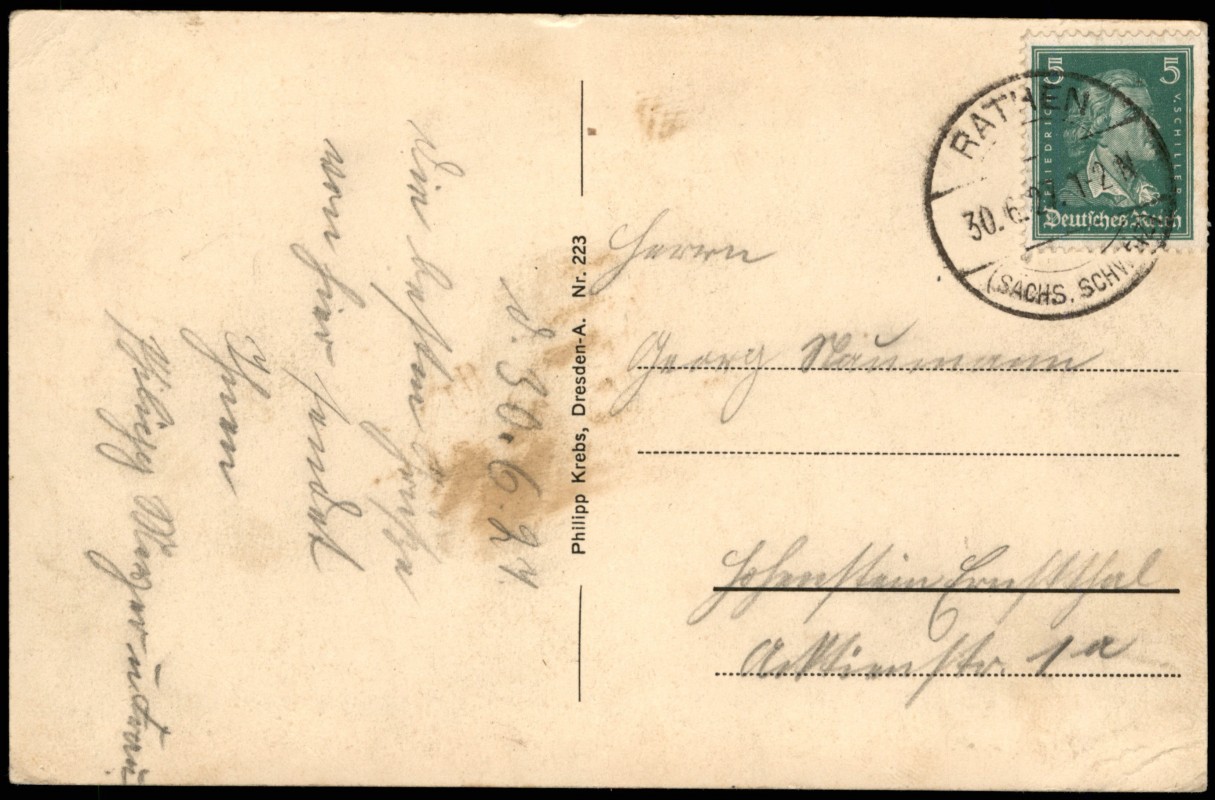 d. 30.6.29
Die besten Grüße
von hier sendet
Ihnen
u. Frau
Philipp Krebs, Dresden-A. Nr. 223
5 5
FRIEDRICH V. SCHILLER
Deutsches Reich
RATHEN
30.6.29. 1-2 N
(SÄCHS. SCHWEIZ)
Herrn
Georg Naumann
Hohenstein Ernstthal
Aktienstr. 1a